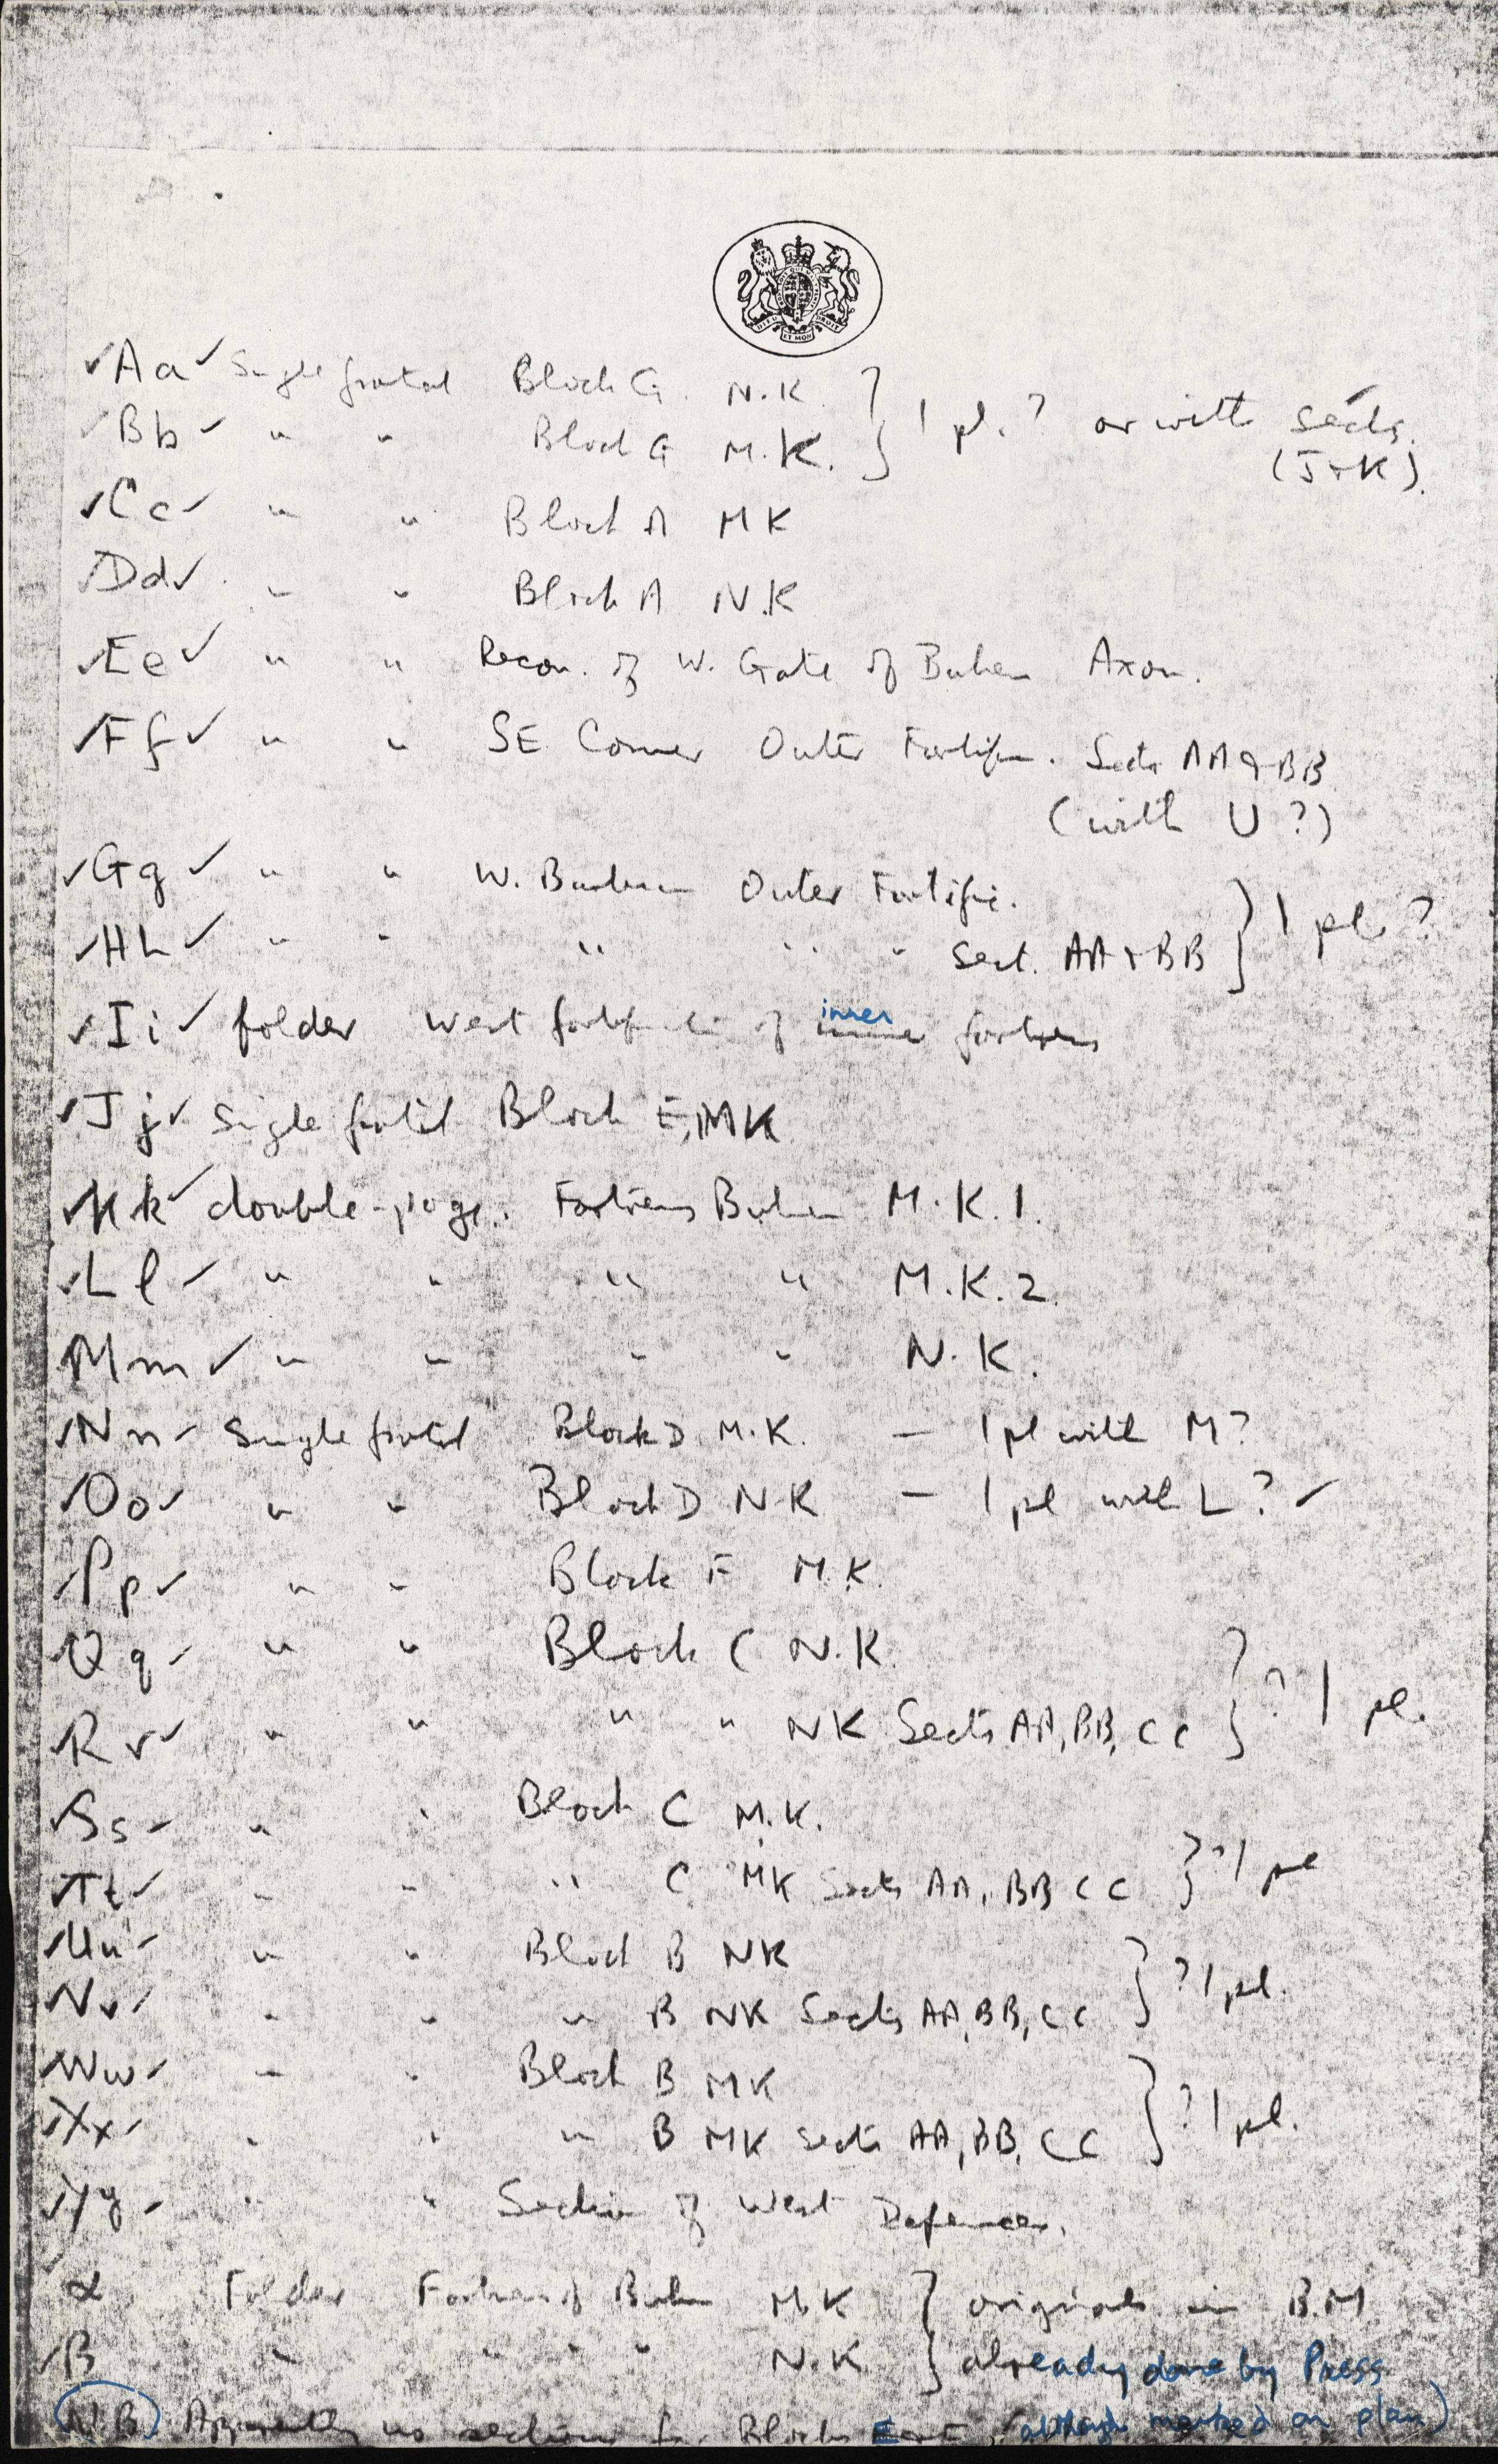 ✓Aa✓ Single frontal Block G. N.K. } 1 pl.? or with Sects.
✓Bb✓ " " Block G M.K. } (J+K).
✓Cc✓ " " Block A MK
✓Dd✓ " " Block A N.K
✓Ee✓ " " Recon. of W. Gate of Buhen Axon.
✓Ff✓ " " SE Corner Outer Fortifn. Sects AA & BB
(with U?)
✓Gg✓ " " W. Outer Fortific.
✓Hh✓ " " " " " Sect. AA + BB } 1 pl. ?
✓Ii✓ folder West of inner fortress
✓Jj✓ Single frontal Block E, MK
✓Kk✓ double-page. Fortress Buhen M.K.1.
✓Ll✓ " " " " M.K.2.
✓Mm✓ " " " " N.K.
✓Nn✓ Single frontal Block D M.K. — 1 pl with M?
✓Oo✓ " " Block D NK — 1 pl with L? ✓
✓Pp✓ " " Block F M.K.
✓Qq✓ " " Block C N.K.
✓Rr✓ " " " " NK Sects AA, BB, CC } ? 1 pl.
✓Ss✓ " " Block C M.K.
✓Tt✓ " " " C MK Sects AA, BB CC } ? 1 pl
✓Uu✓ " " Block B NK
✓Vv✓ " " " B NK Sects AA, BB, CC } ? 1 pl.
✓Ww✓ " " Block B MK
✓Xx✓ " " " B MK Sects AA, BB, CC } ? 1 pl.
✓Yy✓ " " Section of West Defences.
α Folder Fortress of Buhen M.K } originals in B.M
✓B " " " " N.K } already done by Press
N.B. Apparently no sections for Blocks E (although marked on plan)